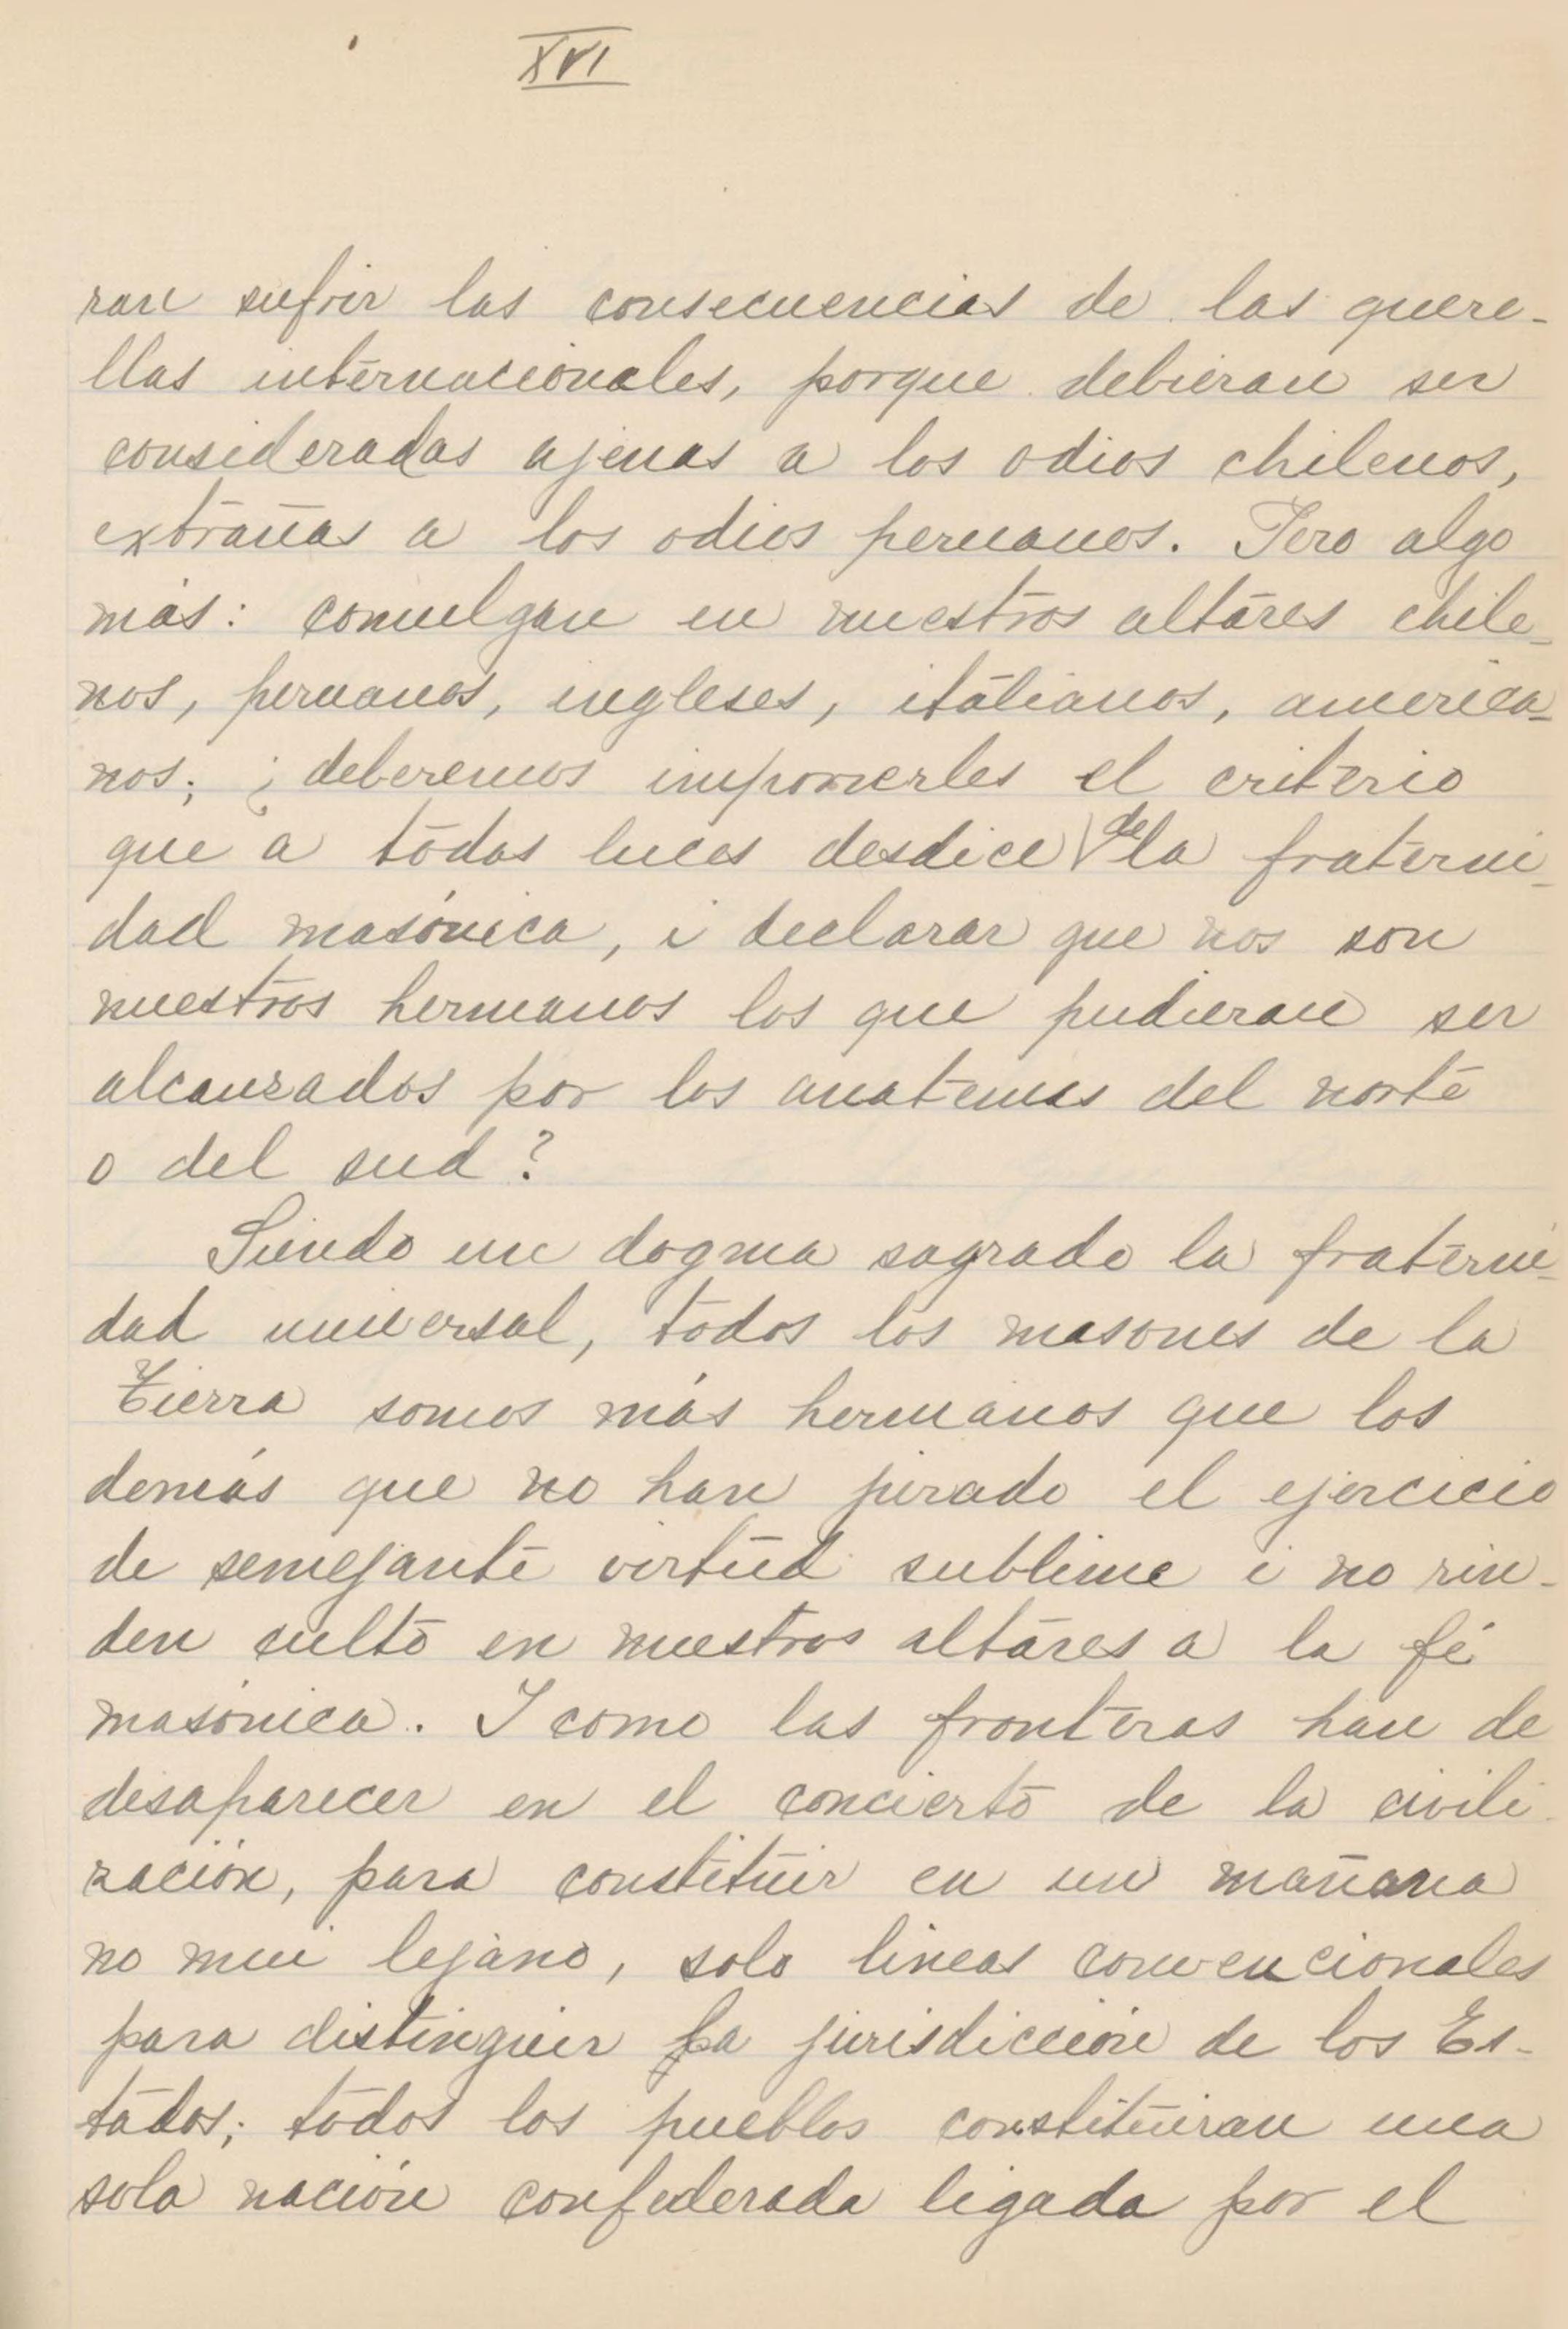 XVI
ran sufrir las consecuencias de las quere-
llas internacionales, porque debieran ser
consideradas ajenas a los odios chilenos,
extrañas a los odios peruanos. Pero algo
más: comulgan en nuestros altares chile-
nos, peruanos, ingleses, italianos, america-
nos; ¿deberemos imponerles el criterio
que a todas luces desdice de la fraterni-
dad masónica, i declarar que nos son
nuestros hermanos los que pudieran ser
alcanzados por los anatemas del norte
o del sud?
Siendo un dogma sagrado la fraterni-
dad universal, todos los masones de la
Tierra somos más hermanos que los
demás que no han jurado el ejercicio
de semejante virtud sublime i no rin-
den culto en nuestros altares a la fé
masónica. I como las fronteras han de
desaparecer en el concierto de la civili-
zación, para constituir en un mañana
no mui lejano, solo lineas convencionales
para distinguir la jurisdicción de los Es-
tados; todos los pueblos constituiran una
sola nación confederada ligada por el